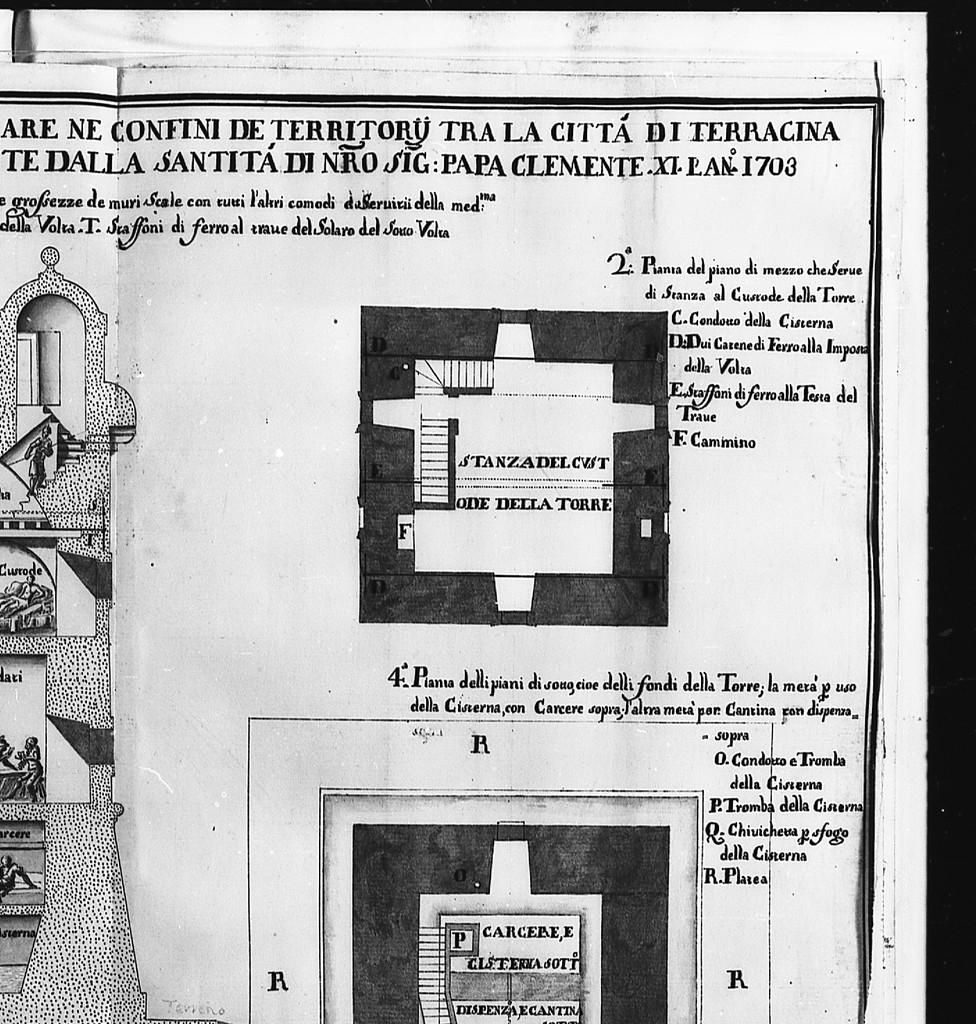 ARE NE CONFINI DE TERRITORIJ TRA LA CITTÁ DI TERRACINA
TE DALLA SANTITÁ DI NRO SIG: PAPA CLEMENTE .XI. L'AN.º 1703
e grossezze de muri Scale con tutti l'altri comodi di Seruitii della med:ma
della Volta. T. Staffoni di ferro al traue del Solaro del Sotto Volta
2.ª Pianta del piano di mezzo che Serue
di Stanza al Custode della Torre
C. Condotto della Cisterna
D. Dui Catene di Ferro alla Imposta
della Volta
E. Staffoni di ferro alla Testa del
Traue
F. Cammino
D
C
STANZA DEL CVST
ODE DELLA TORRE
E
E
F
D
D
Custode
dati
arcere
isterna
Terreno
4.ª Pianta delli piani di sotto, cioe delli fondi della Torre; la metà p uso
della Cisterna, con Carcere sopra; l'altra metà per Cantina con dispenza=
= sopra
O. Condotto e Tromba
della Cisterna
P. Tromba della Cisterna
Q. Chiuichetta p sfogo
della Cisterna
R. Platea
R
O
P
CARCERE, E
CISTERNA SOTT.º
DISPENZA, E CANTINA
R
R